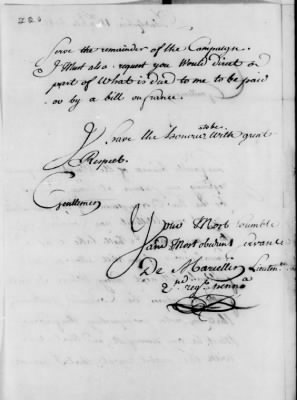 220
serve the remainder of the Campaigne.
I Must also request you Would direct a
part of What is due to me to be paid
by a bill on france.
I have the honour to be with great
Respect.
Gentlemen
Your Most humble
and Most obedient servant
De Marcellin Lieutent
2nd regt